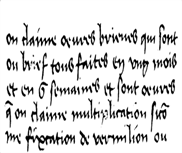 on claime oeuvres brieues qui sont
ou brief tous faites en ung mois
et en 6 semaines et sont oeuures
q̃ on claime multiplication sicõ
me fixcation de vermilion ou